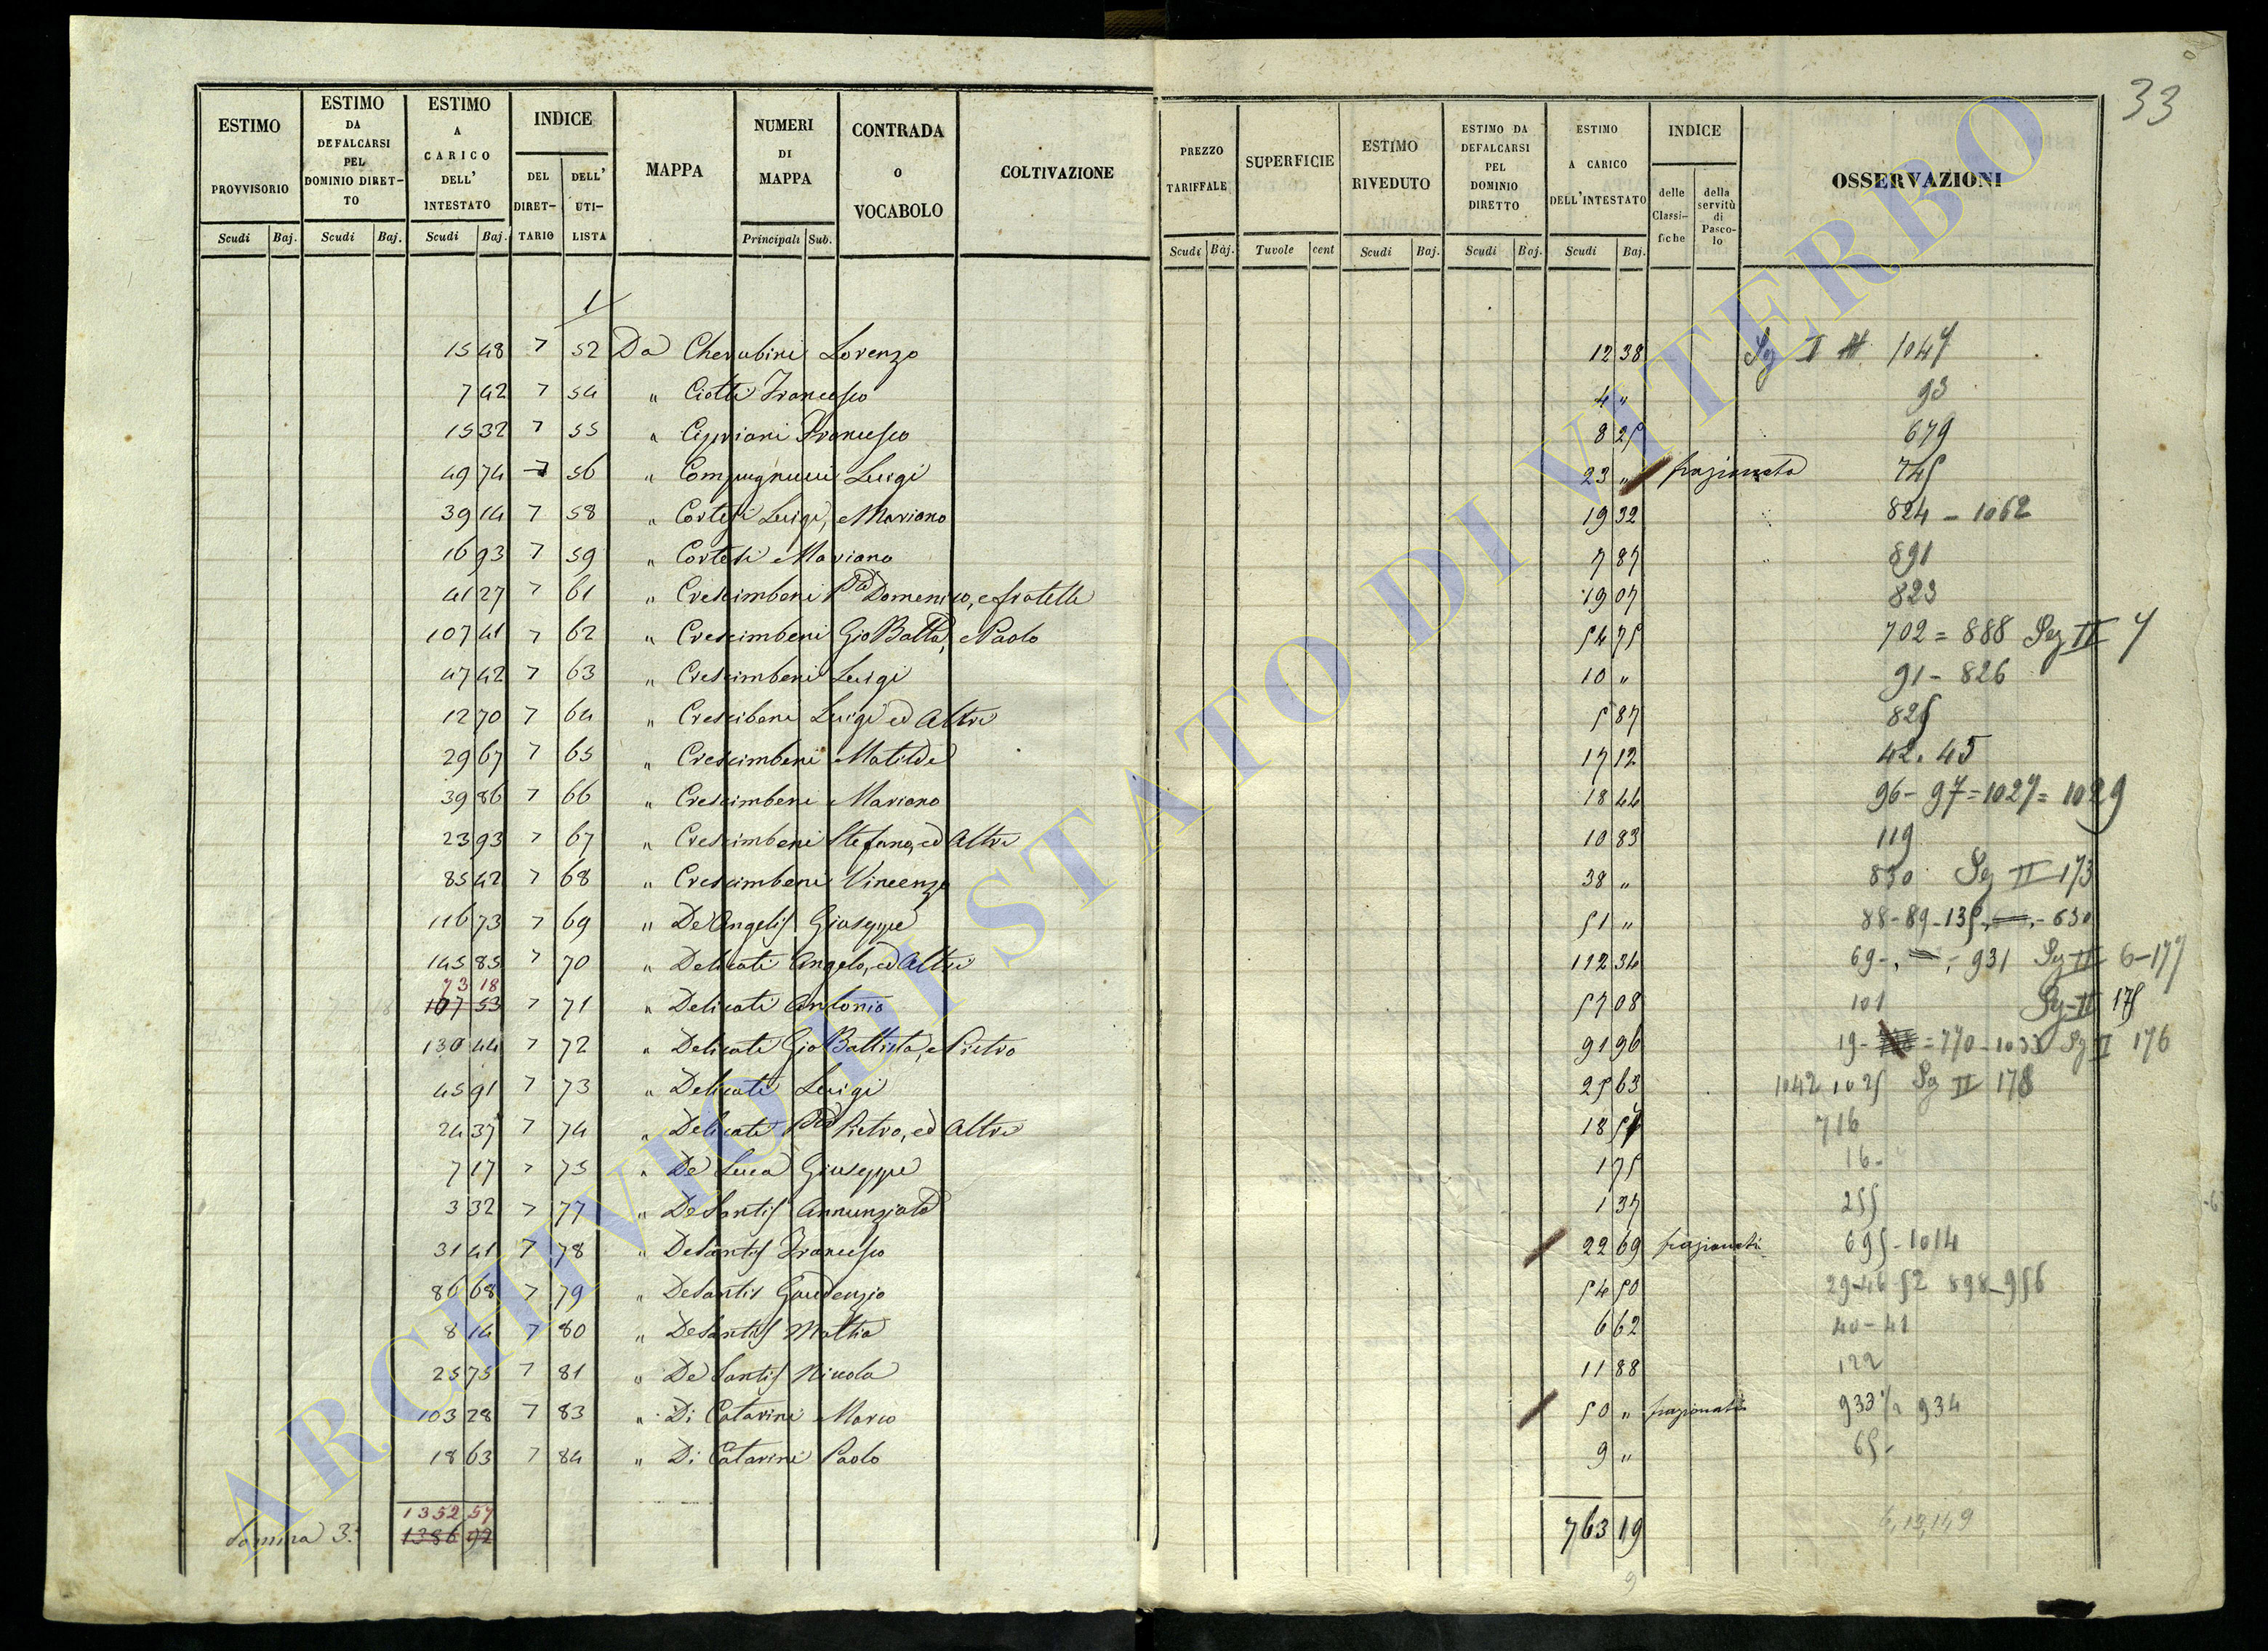 33
ESTIMO PROVVISORIO
ESTIMO DA DEFALCARSI PEL DOMINIO DIRET-TO
ESTIMO A CARICO DELL' INTESTATO
INDICE
DEL DIRET-TARIO
DELL' UTI-LISTA
MAPPA
NUMERI DI MAPPA
CONTRADA O VOCABOLO
COLTIVAZIONE
PREZZO TARIFFALE
SUPERFICIE
ESTIMO RIVEDUTO
ESTIMO DA DEFALCARSI PEL DOMINIO DIRETTO
ESTIMO A CARICO DELL'INTESTATO
INDICE
delle Classi-fiche
della servitù di Pasco-lo
OSSERVAZIONI
Scudi Baj. Scudi Baj. Scudi Baj. Principali Sub. Scudi Baj. Tavole cent Scudi Baj. Scudi Baj. Scudi Baj.
1
15 48 7 52 Da Cherubini Lorenzo 12 38 Sez I 1047
7 42 7 54 " Ciotti Francesco 4 " 93
15 32 7 55 " Cipriani Francesco 8 25 679
49 74 7 56 " Compagnucci Luigi 23 " frazionata 745
39 14 7 58 " Cortesi Luigi, e Mariano 19 32 824 - 1062
16 93 7 59 " Cortesi Mariano 7 87 891
41 27 7 61 " Crescimbeni Domenico, e fratelli 19 07 823
107 41 7 62 " Crescimbeni Gio Batta, e Paolo 54 75 702 = 888 Sez II 7
47 42 7 63 " Crescimbeni Luigi 10 " 91 - 826
12 70 7 64 " Crescibeni Luigi ed Altri 5 87 825
29 67 7 65 " Crescimbeni Matilde 17 12 42. 45
39 86 7 66 " Crescimbeni Mariano 18 44 96 - 97 = 1027 = 1029
23 93 7 67 " Crescimbeni Stefano, ed Altri 10 83 119
85 42 7 68 " Crescimbeni Vincenzo 38 " 830 Sez II 173
116 73 7 69 " De Angelis Giuseppe 51 " 88 - 89 - 135 - 630
145 85 7 70 " Delicati Angelo, ed Altri 112 34 69 - 931 Sez II 6 - 177
73 18
107 53 7 71 " Delicati Antonio 57 08 101 Sez II 175
130 44 7 72 " Delicati Gio Battista, e Pietro 91 96 19 - = 770 - 1033 Sez II 176
45 91 7 73 " Delicati Luigi 25 63 1042 1025 Sez II 178
24 37 7 74 " Delicati Pietro, ed Altri 18 57 716
7 17 7 75 " De Luca Giuseppe 1 75 16 -
3 32 7 77 " De Santis Annunziata 1 37 255
31 41 7 78 " De Santis Francesco 22 69 frazionati 695 - 1014
86 68 7 79 " De Santis Gaudenzio 54 50 29 - 46 - 52 898 - 956
8 14 7 80 " De Santis Mattia 6 62 40 - 41
25 75 7 81 " De Santis Nicola 11 88 122
103 28 7 83 " Di Catarini Marco 50 " frazionati 933 934
18 63 7 84 " Di Catarini Paolo 9 " 65 -
1352 57
Somma 3ª 1386 92 763 19
9
ARCHIVIO DI STATO DI VITERBO